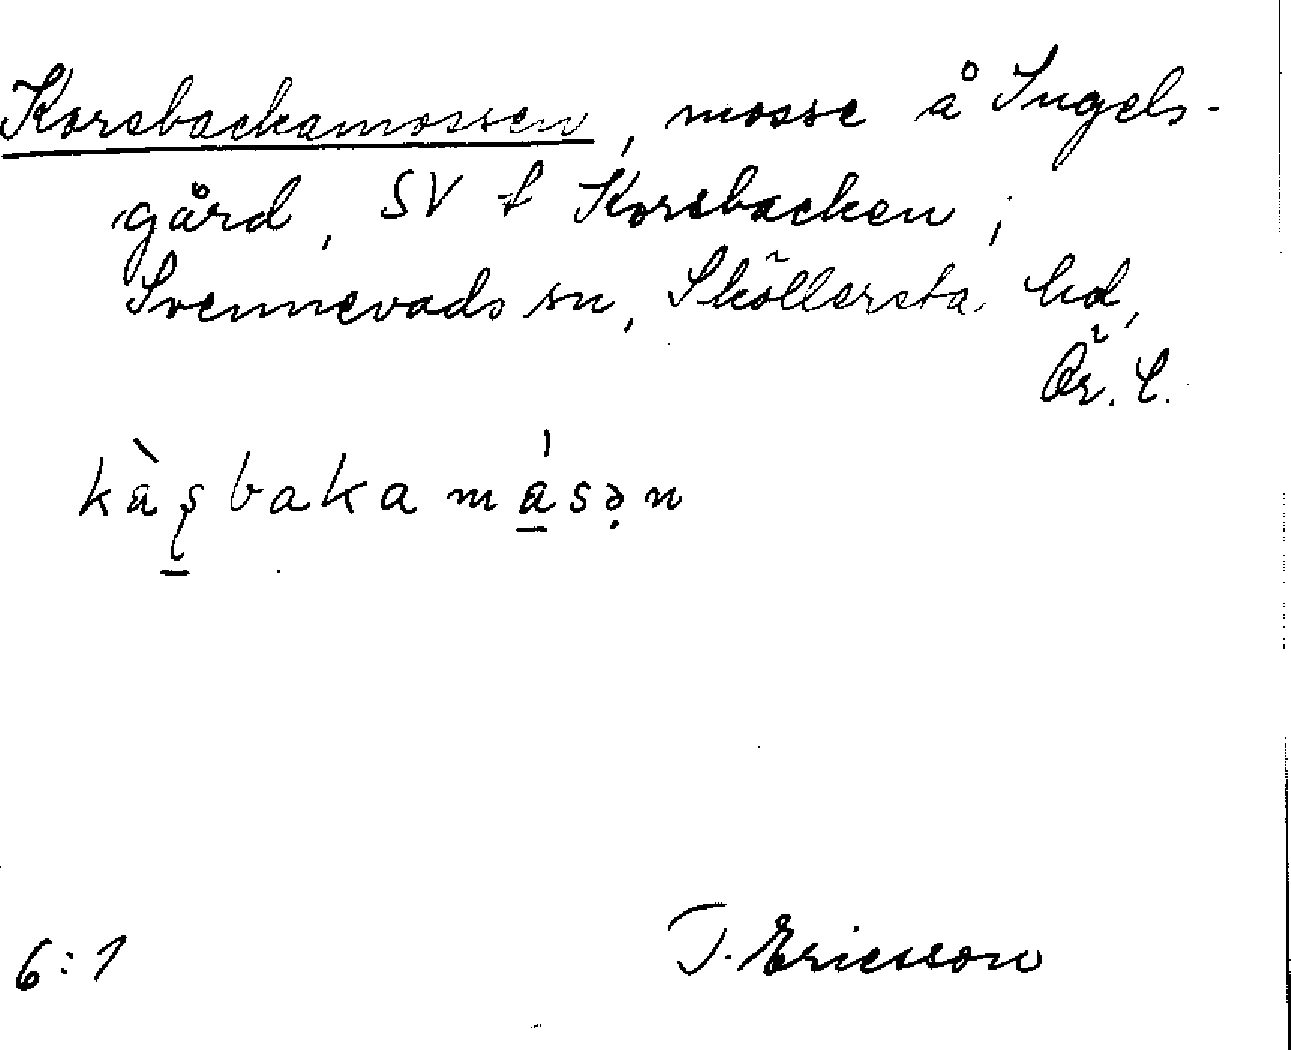 Korsbackamossen, mosse å Ingels-
gård, SV f Korsbacken;
Svennevads sn, Sköllersta hd,
Ör. l.
kàʂbakamásə̣n
6:1
T. Ericsson